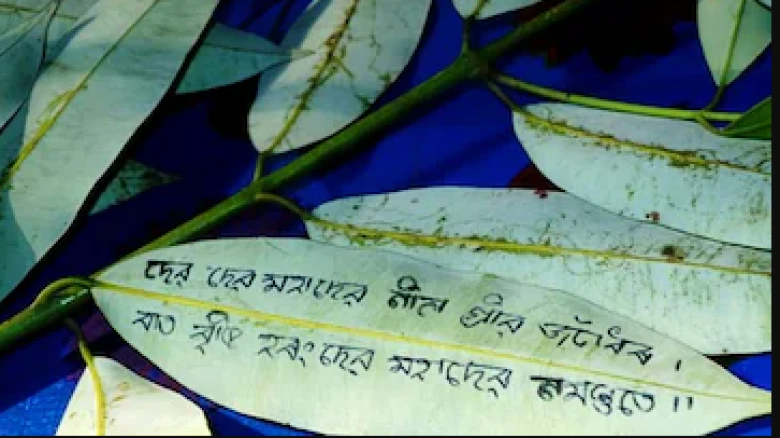 দেৱ দেৱ মহাদেৱ নীল গ্ৰীৱ জটাধৰ ।
বাত বৃষ্টি হৰং দেৱ মহাদেৱ নমস্তুতে ॥